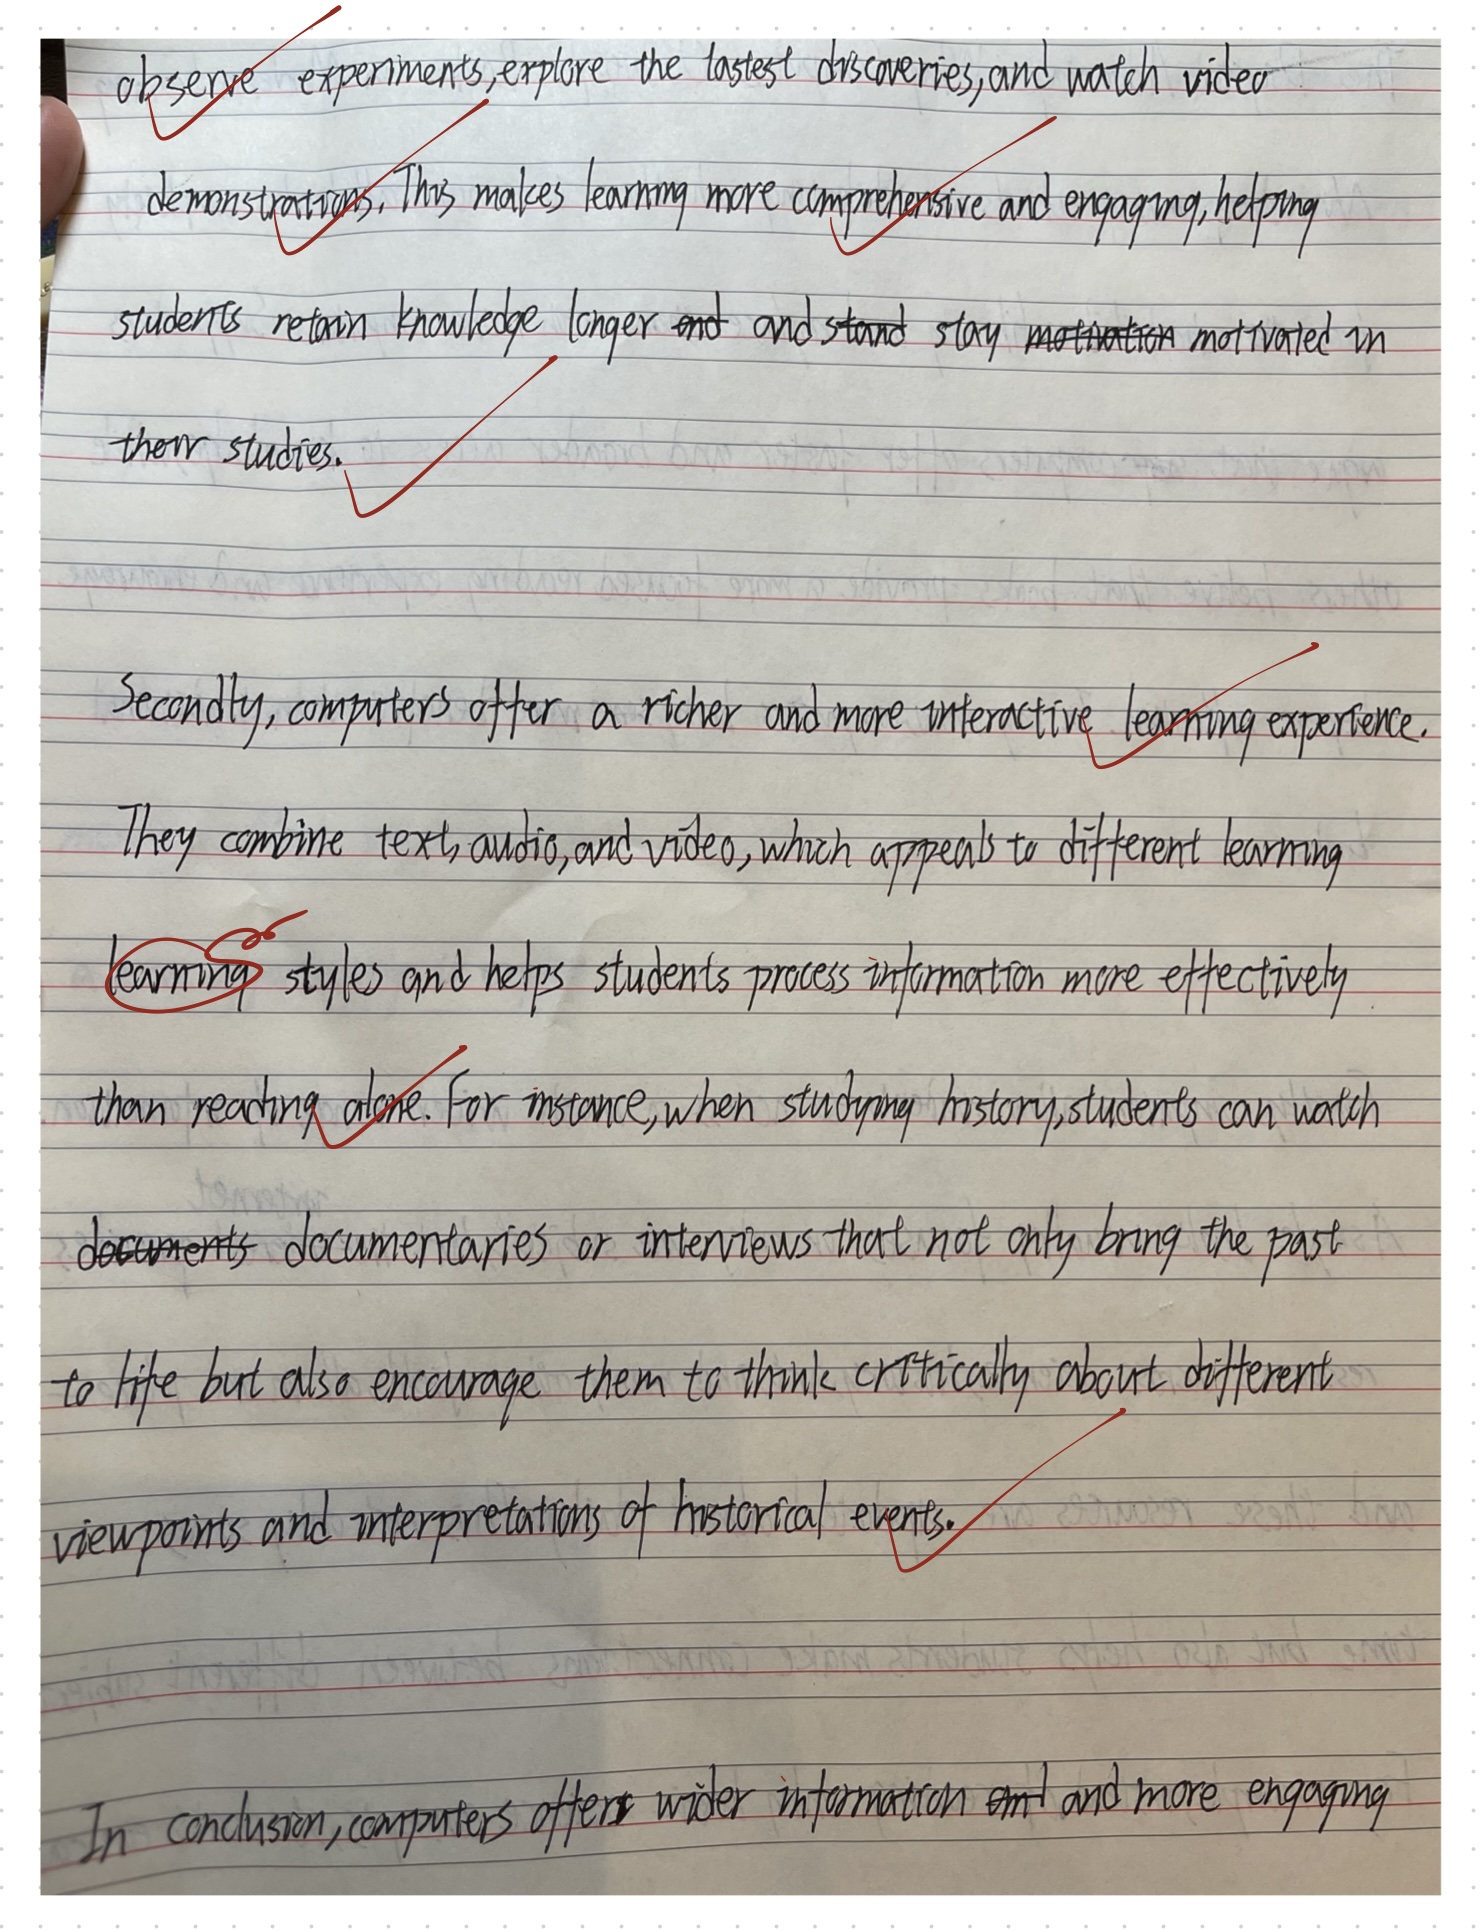 observe experiments, explore the lastest discoveries, and watch video
demonstrations. This makes learning more comprehensive and engaging, helping
students retain knowledge longer and and stand stay motivation motivated in
their studies.
Secondly, computers offer a richer and more interactive learning experience.
They combine text, audio, and video, which appeals to different learning
learning styles and helps students process information more effectively
than reading alone. For instance, when studying history, students can watch
documents documentaries or interviews that not only bring the past
to life but also encourage them to think critically about different
viewpoints and interpretations of historical events.
In conclusion, computers offers wider information and and more engaging